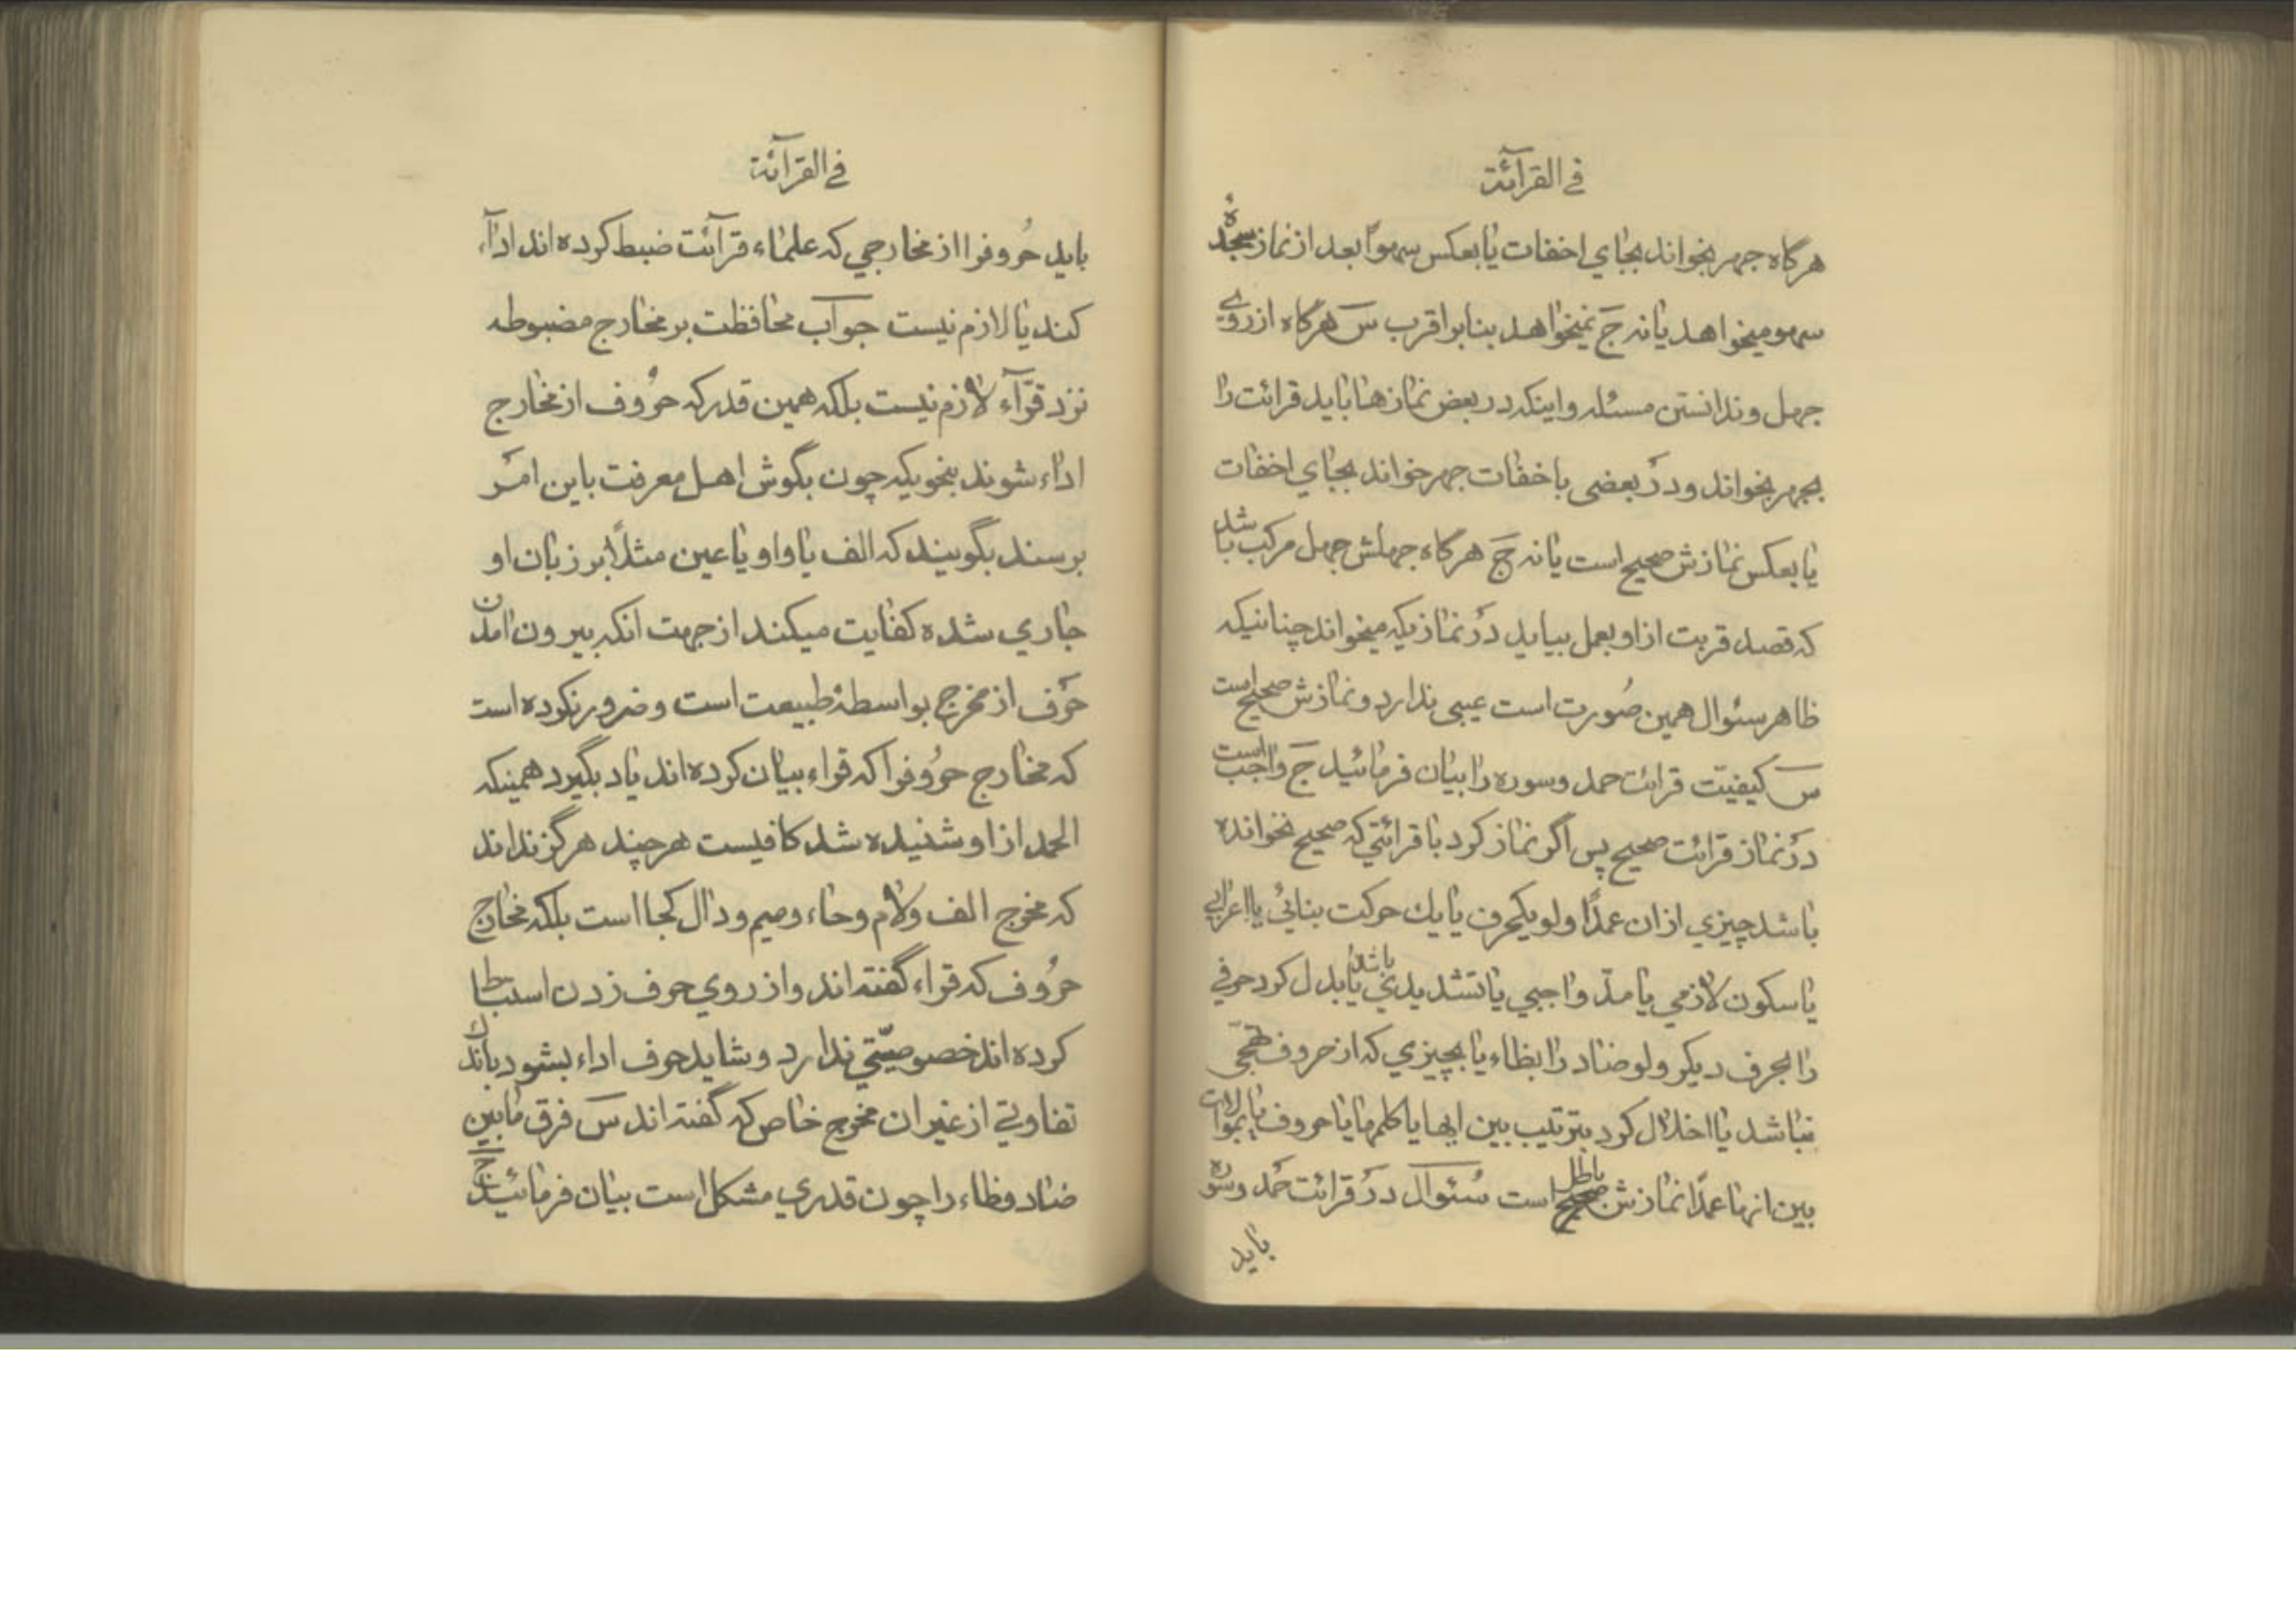 في القرآئة
هرگاه جهر بخواند بجاي اخفات يا بعكس سهوًا بعد از نماز سجدهٔ
سهو ميخواهد يا نه جَ نميخواهد بنابر اقرب سَ هرگاه از روي
جهل و ندانستن مسئله و اينكه در بعض نمازها بايد قرائت را
بجهر بخواند و در بعضى باخفات جهر خواند بجاي اخفات
يا بعكس نمازش صحيح است يا نه جَ هرگاه جهلش جهل مركب باشد
كه قصد قربت از او بعمل بيايد در نمازيكه ميخواند چنانيكه
ظاهر سئوال همين صُورت است عيبى ندارد و نمازش صحيح است
سَ كيفيّت قرائت حمد و سوره را بيان فرمائيد جَ واجب است
در نماز قرائت صحيح پس اگر نماز كرد با قرائتي كه صحيح نخوانده
باشد چيزي از ان عمدًا ولو يكحرف يا يك حركت بنائي يا اعرابي
يا سكون لازمي يا مدّ واجبي يا تشديدي باشد يا بدل كرد حرفي
را بحرف ديكر ولو ضاد را بظاء يا بچيزي كه از حروف تهجّى
نباشد يا اخلال كرد بترتيب بين ايها يا كلمها يا حروف يا بموالات
بين انها عمدًا نمازش صحيح باطل است سُئوال در قرائت حَمد و سوره
بايد
في القرآئة
بايد حُروفرا از مخارجي كه علماء قرآئت ضبط كرده اند ادآء
كند يا لازم نيست جوآب محافظت بر مخارج مضبوطه
نزد قرّآء لازم نيست بلكه همين قدر كه حرُوف از مخارج
اداء شوند بنحويكه چون بگوش اهل معرفت باين امَر
برسند بگويند كه الف يا واو يا عين مثلًا بر زبان او
جاري شده كفايت ميكند از جهت انكه بيرون امدن
حَرف از مخرج بواسطهٔ طبيعت است و ضرور نكرده است
كه مخارج حرُوفرا كه قراء بيان كرده اند ياد بگيرد همينكه
الحمد از او شنيده شد كافيست هر چند هرگز نداند
كه مخرج الف و لام و حاء و ميم و دال كجا است بلكه مخارج
حرُوف كه قراء گفته اند و از روي حرف زدن استنباط
كرده اند خصوصيّتي ندارد و شايد حرف اداء بشود باندك
تفاوتي از غير ان مخرج خاص كه گفته اند سَ فرق مابين
ضاد و ظاء را چون قدري مشكل است بيان فرمائيد ج